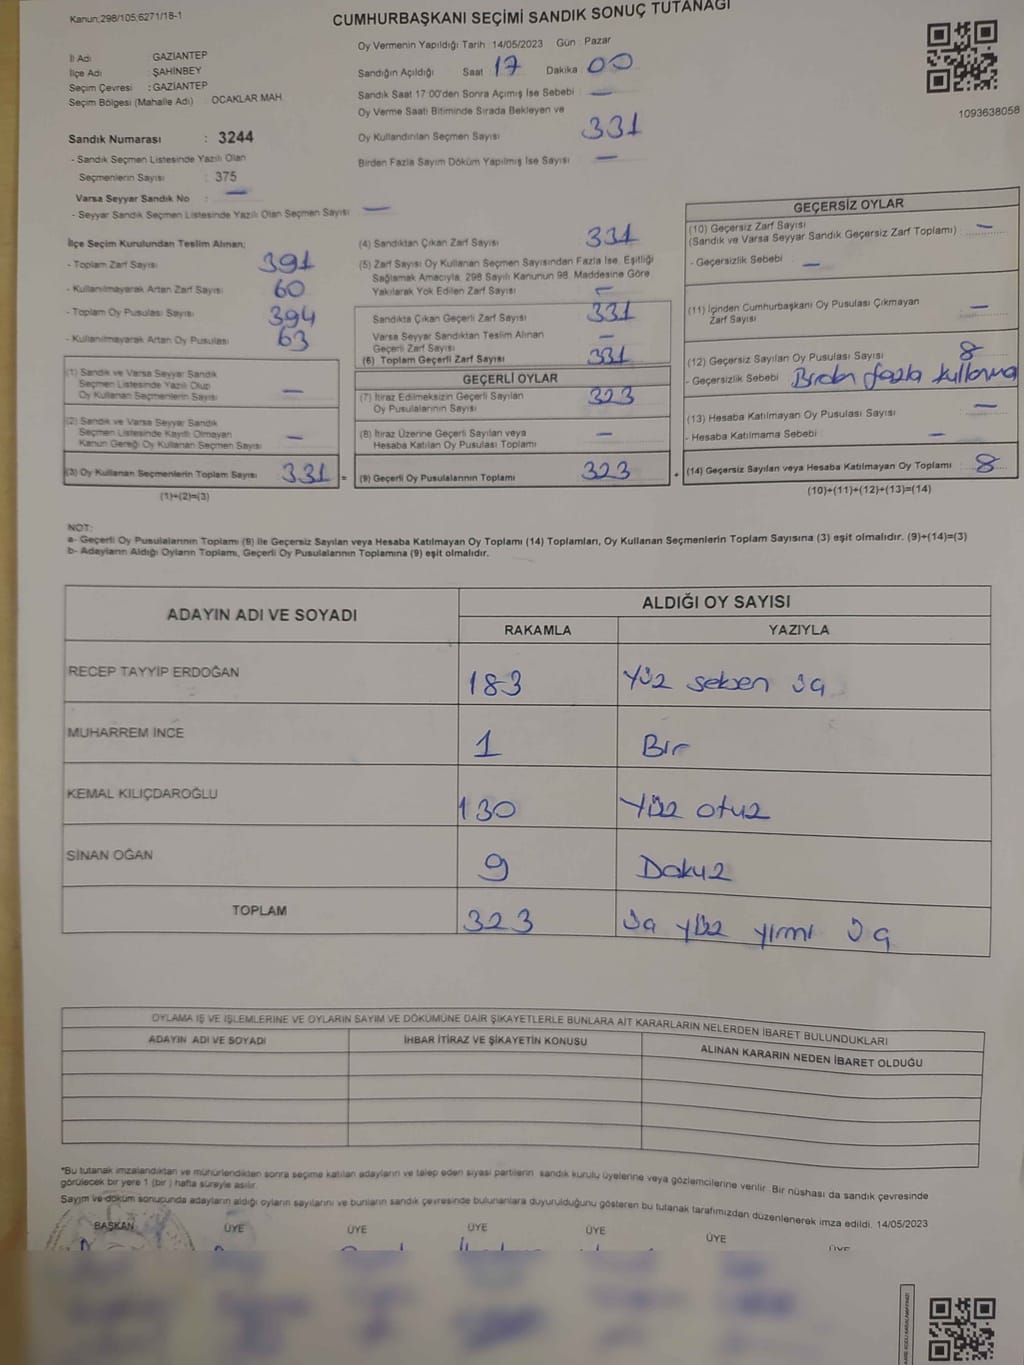 Kanun;298/105;6271/18-1
CUMHURBAŞKANI SEÇİMİ SANDIK SONUÇ TUTANAĞI
İl Adı GAZİANTEP
İlçe Adı ŞAHİNBEY
Seçim Çevresi : GAZİANTEP
Seçim Bölgesi (Mahalle Adı) OCAKLAR MAH.
Sandık Numarası : 3244
- Sandık Seçmen Listesinde Yazılı Olan
Seçmenlerin Sayısı : 375
Varsa Seyyar Sandık No —
- Seyyar Sandık Seçmen Listesinde Yazılı Olan Seçmen Sayısı —
Oy Vermenin Yapıldığı Tarih : 14/05/2023 Gün : Pazar
Sandığın Açıldığı Saat : 17 Dakika : 00
Sandık Saat 17:00'den Sonra Açımış İse Sebebi : —
Oy Verme Saati Bitiminde Sırada Bekleyen ve
Oy Kullandırılan Seçmen Sayısı 331
Birden Fazla Sayım Döküm Yapılmış İse Sayısı —
1093638058
İlçe Seçim Kurulundan Teslim Alınan;
- Toplam Zarf Sayısı 391
- Kullanılmayarak Artan Zarf Sayısı 60
- Toplam Oy Pusulası Sayısı 394
- Kullanılmayarak Artan Oy Pusulası 63
(1) Sandık ve Varsa Seyyar Sandık
Seçmen Listesinde Yazılı Olup
Oy Kullanan Seçmenlerin Sayısı —
(2) Sandık ve Varsa Seyyar Sandık
Seçmen Listesinde Kayıtlı Olmayan
Kanun Gereği Oy Kullanan Seçmen Sayısı —
(3) Oy Kullanan Seçmenlerin Toplam Sayısı 331 =
(1)+(2)=(3)
(4) Sandıktan Çıkan Zarf Sayısı 331
(5) Zarf Sayısı Oy Kullanan Seçmen Sayısından Fazla İse, Eşitliği
Sağlamak Amacıyla, 298 Sayılı Kanunun 98. Maddesine Göre
Yakılarak Yok Edilen Zarf Sayısı —
Sandıkta Çıkan Geçerli Zarf Sayısı 331
Varsa Seyyar Sandıktan Teslim Alınan
Geçerli Zarf Sayısı —
(6) Toplam Geçerli Zarf Sayısı 331
GEÇERLİ OYLAR
(7) İtiraz Edilmeksizin Geçerli Sayılan
Oy Pusulalarının Sayısı 323
(8) İtiraz Üzerine Geçerli Sayılan veya
Hesaba Katılan Oy Pusulası Toplamı —
(9) Geçerli Oy Pusulalarının Toplamı 323 +
GEÇERSİZ OYLAR
(10) Geçersiz Zarf Sayısı
(Sandık ve Varsa Seyyar Sandık Geçersiz Zarf Toplamı) : —
- Geçersizlik Sebebi : —
(11) İçinden Cumhurbaşkanı Oy Pusulası Çıkmayan
Zarf Sayısı —
(12) Geçersiz Sayılan Oy Pusulası Sayısı 8
- Geçersizlik Sebebi fazla kullanma
(13) Hesaba Katılmayan Oy Pusulası Sayısı —
- Hesaba Katılmama Sebebi : —
(14) Geçersiz Sayılan veya Hesaba Katılmayan Oy Toplamı 8
(10)+(11)+(12)+(13)=(14)
NOT:
a- Geçerli Oy Pusulalarının Toplamı (9) ile Geçersiz Sayılan veya Hesaba Katılmayan Oy Toplamı (14) Toplamları, Oy Kullanan Seçmenlerin Toplam Sayısına (3) eşit olmalıdır. (9)+(14)=(3)
b- Adayların Aldığı Oyların Toplamı, Geçerli Oy Pusulalarının Toplamına (9) eşit olmalıdır.
ADAYIN ADI VE SOYADI ALDIĞI OY SAYISI
RAKAMLA YAZIYLA
RECEP TAYYİP ERDOĞAN 183 Yüz seksen üç
MUHARREM İNCE 1 Bir
KEMAL KILIÇDAROĞLU 130 Yüz otuz
SİNAN OĞAN 9 Dokuz
TOPLAM 323 üç yüz yirmi üç
OYLAMA İŞ VE İŞLEMLERİNE VE OYLARIN SAYIM VE DÖKÜMÜNE DAİR ŞİKAYETLERLE BUNLARA AİT KARARLARIN NELERDEN İBARET BULUNDUKLARI
ADAYIN ADI VE SOYADI İHBAR İTİRAZ VE ŞİKAYETİN KONUSU ALINAN KARARIN NEDEN İBARET OLDUĞU
*Bu tutanak imzalandıktan ve mühürlendikten sonra seçime katılan adayların ve talep eden siyasi partilerin sandık kurulu üyelerine veya gözlemcilerine verilir. Bir nüshası da sandık çevresinde
görülecek bir yere 1 (bir) hafta süreyle asılır.
Sayım ve döküm sonucunda adayların aldığı oyların sayılarını ve bunların sandık çevresinde bulunanlara duyurulduğunu gösteren bu tutanak tarafımızdan düzenlenerek imza edildi. 14/05/2023
BAŞKAN ÜYE ÜYE ÜYE ÜYE ÜYE ÜYE